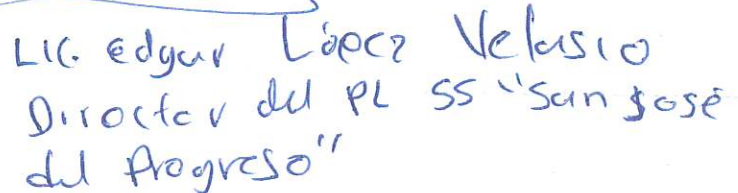 Lic. Edgar López Velasco
Director del PL SS "San José
del Progreso"